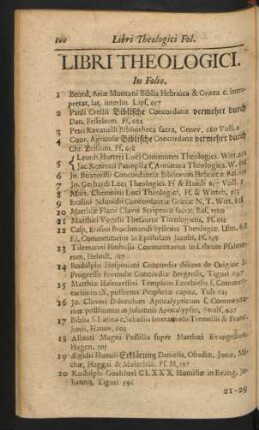 100 Libri Theologici Fol.
LIBRI THEOLOGICI.
In Folio.
1 Bened. Ariæ Montani Biblia Hebraica & Græca c. inter-
pretat. lat. interlin. Lipſ. 657
2 Pauli Crellii Bibliſche Concordanz vermehrt durch
Dan. Feſſelium. Ff.
3 Petri Ravanelli Bibliotheca ſacra, Genev. 660 Voll. 2
4 Conr. Agricolæ Bibliſche Concordanz vermehrt durch
Chr. Zeiſium. Ff.
5 Leonh. Hutteri Loci Communes Theologici. Witt.
Jac. Reneccii Panoplia ſ. Armatura Theologica. W.
6 Jo. Buxtorfii Concordantiæ Bibliorum Hebraicæ. Baſ.
7 Jo. Gerhardi Loci Theologici. Ff & Hamb 657 Voll. 3
8 Mart. Chemnitii Loci Theologici, Ff & Witteb.
9 Eraſmi Schmidii Concordantiæ Græcæ N. T. Witt.
10 Matthiæ Flacii Clavis Scripturæ ſacræ. Baſ.
11 Matthæi Vogelii Theſaurus Theologicus. Ff.
12 Caſp. Eraſmi Brochmandi Syſtema Theologiæ. Ulm.
Ej. Commentarius in Epiſtolam Jacobi. Ff.
13 Tilemanni Heshuſii Commentarius in Librum Pſalmo-
rum. Helmſt.
14 Rudolphi Hoſpiniani Concordia diſcors de Origine &
Progreſſu Formulæ Concordiæ Bergenſis, Tiguri 607
15 Matthiæ Hafenreffers Templum Ezechielis ſ. Commen-
tarius in IX. poſtrema Prophetæ capita, Tub 613
16 Jo. Cluveri Diluculum Apocalypticum ſ. Commenta-
rius poſthumus in Johannis Apocalypſin, Stralſ. 647
17 Biblia S. Latina c. Scholiis Immanuelis Tremellii & Franc.
Junii, Hanov.
18 Alberti Magni Poſtilla ſuper Matthæi Evangelium,
Hagen.
19 Ægidii Hunnii Erklärung Danielis, Obadiæ, Jonæ, Mi-
chæ, Haggai & Malachiæ. Ff M,
20 Rodolphi Gualtheri CLXXX. Homiliæ in Evang. Jo-
hannis, Tiguri
21-29